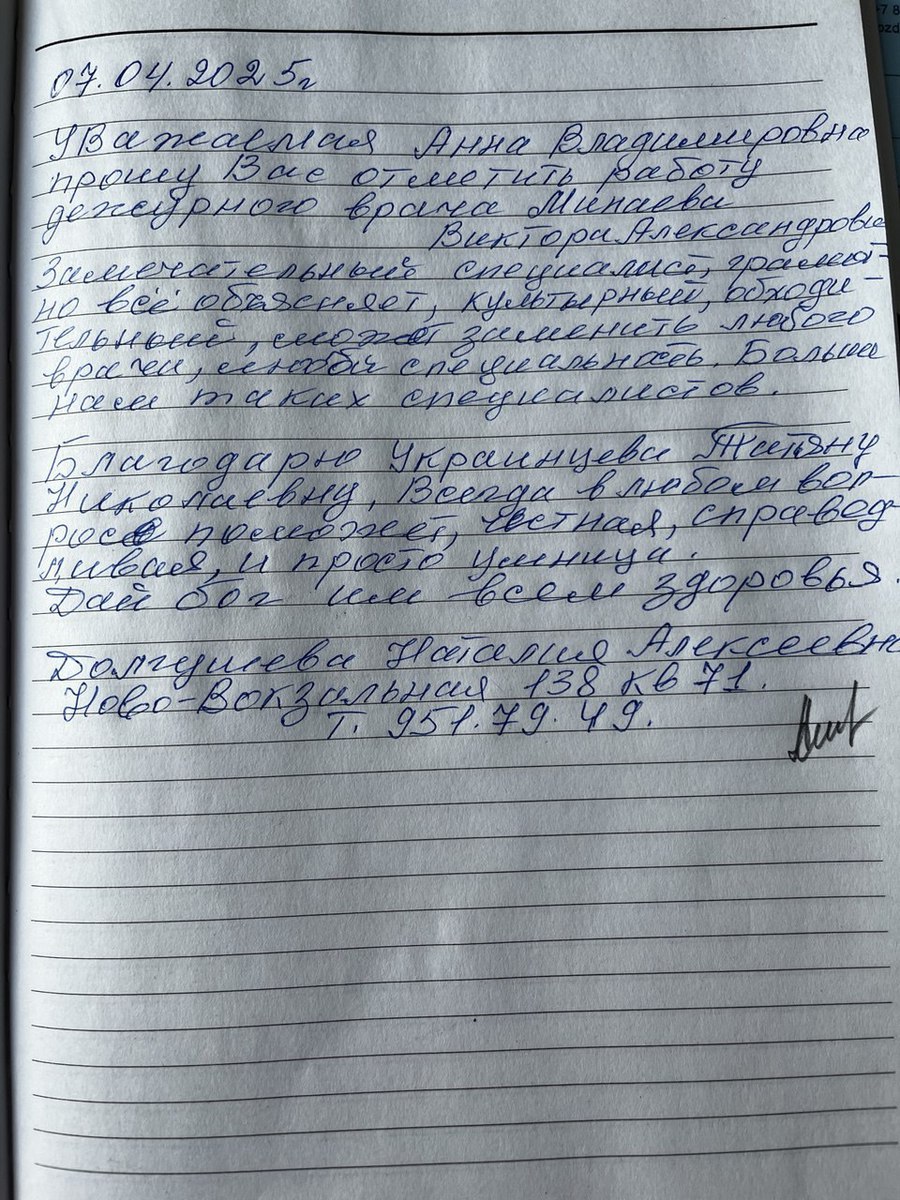 07.04.2025г
Уважаемая Анна Владимировна
прошу Вас отметить работу
дежурного врача Минаева
Виктора Александрови
Замечательный специалист, грамот-
но всё объясняет, культырный, обходи-
тельный, сможет заменить любого
врача, любой специальность. Больше
нам таких специалистов.
Благодарю Украинцева Татьяну
Николаевну, Всегда в любом воп-
росе поможет, честная, справед-
ливая, и просто умница.
Дай бог им всем здоровья.
Долгушева Наталия Алексеевна
Ново-Вокзальная 138 кв 71.
Т. 951.79.49.